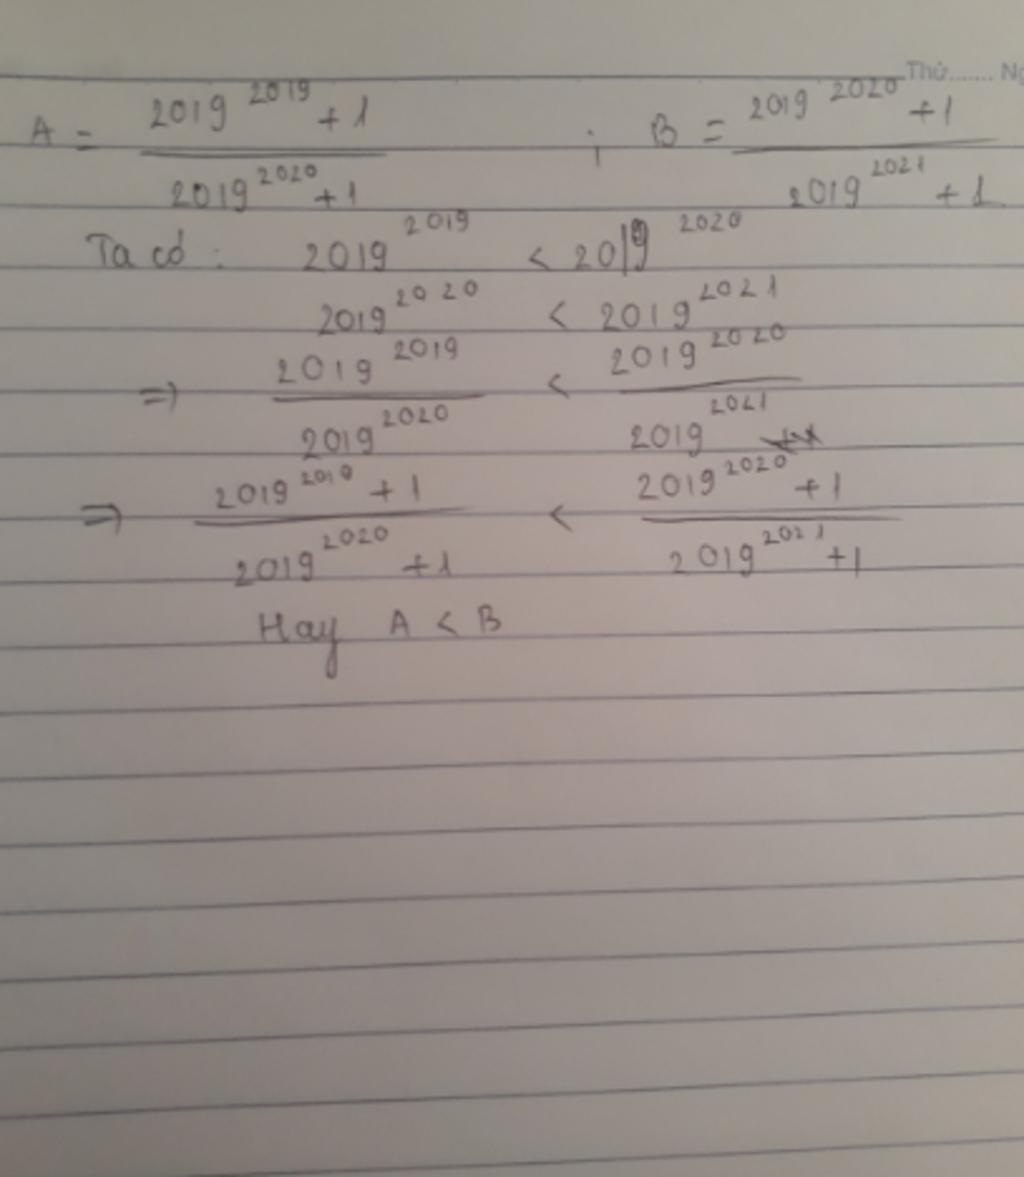 Thứ....... Ng
A = \frac{2019^{2019}+1}{2019^{2020}+1} ; B = \frac{2019^{2020}+1}{2019^{2021}+1}
Ta có : 2019^{2019} < 2019^{2020}
2019^{2020} < 2019^{2021}
=> \frac{2019^{2019}}{2019^{2020}} < \frac{2019^{2020}}{2019^{2021}}
=> \frac{2019^{2019}+1}{2019^{2020}+1} < \frac{2019^{2020}+1}{2019^{2021}+1}
Hay A < B